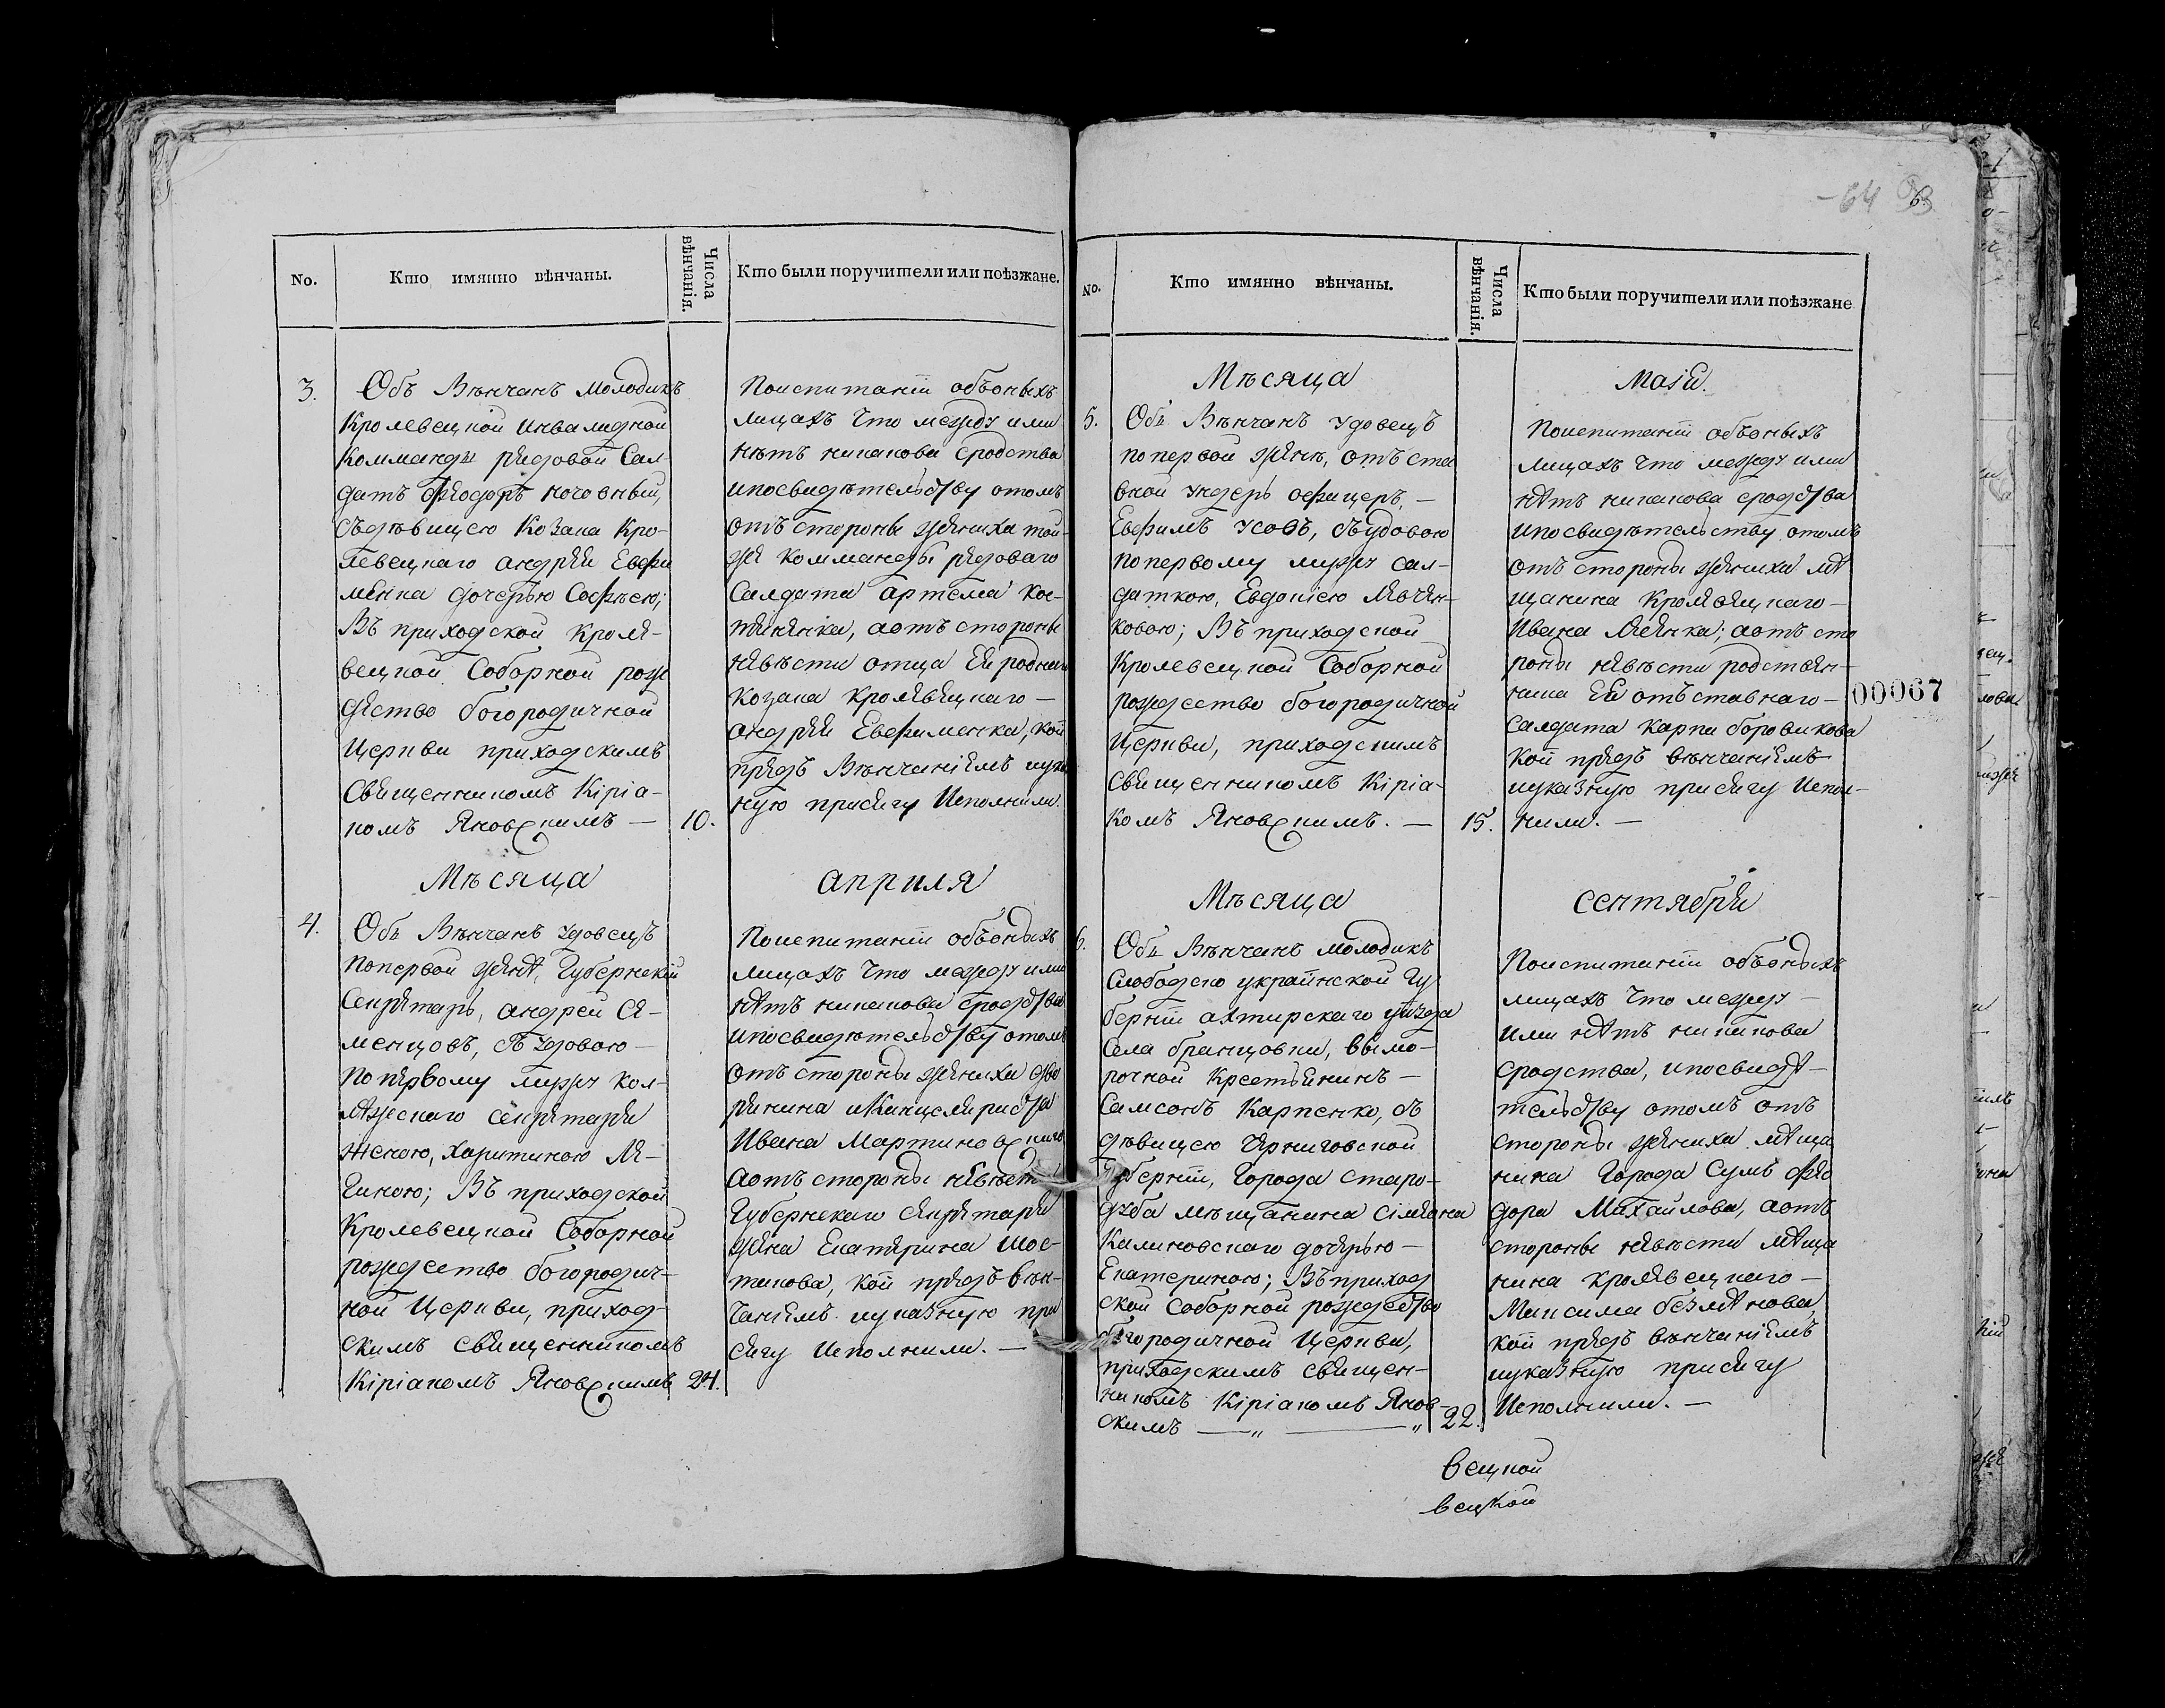 -64 63
No.
Кто имянно вѣнчаны.
Числа вѣнчанія.
Кто были поручители или поѣзжане.
3.
Объ Вѣнчанъ молодикъ
Кролевецкой инвалидной
Комманды рядовой Сал
датъ Ѳіодоръ ночовный,
съдѣвицею Козака Кро-
левецкаго андрея Евфи
менка дочерью Софѣею;
Въ приходской кроле-
вецкой Соборной рож
дество богородичной
Церкви приходскимъ
Священникомъ Кірiа-
комъ Яновскимъ —
10.
Поиспитаніи объоныхъ
лицахъ Что между ими
нѣтъ никакова Сродства
ипосвидѣтельству отомъ
отъ стороны жениха той-
же Комманды рядоваго
Салдата артема Кос-
, аотъ стороны
невѣсти отца Ея родная
Козака кролевецкаго —
андрея Евфименка, кои
предъ Вѣнчаніемъ иука
зную присягу Исполнили.
Мѣсяца
априля
4.
Объ Вѣнчанъ удовецъ
попервой женѣ, Губернскій
Секретарь, андрей Се-
менцовъ, съ удовою —
попервому мужу кол-
лѣжскаго секретаря
женою, харитиною Ля-
; Въ приходской
Кролевецкой Соборной
рождество богородич-
ной Церкви, приход-
скимъ священникомъ
Кірiакомъ Яновскимъ
24.
Поиспитаніи объоныхъ
лицахъ Что между ими
нѣтъ никакова сродства
ипосвидѣтельству отомъ
отъ стороны жениха дво
рянина иканцеляриста
Ивана Мартиновскаго
аотъ стороны невѣсти
Губернскаго секретаря
жена Екатерина Шос-
такова, кои предъ вѣн-
чаніемъ иуказную при
сягу Исполнили. —
No.
Кто имянно вѣнчаны.
Числа вѣнчанія.
Кто были поручители или поѣзжане
Мѣсяца
Маія.
5.
Объ Вѣнчанъ удовецъ
попервой женѣ, отъ ста
вной ундеръ офицеръ, —
Евфимъ Усовъ, съудовою
попервому мужу сал-
даткою, Евдокіею Левчен-
ковою; Въ приходской
Кролевецкой Соборной
рождество богородичной
Церкви, приходскимъ
Священникомъ Кірiа-
комъ Яновскимъ. —
15.
Поиспитаніи объоныхъ
лицахъ Что между ими
нѣтъ никакова сродства
ипосвидѣтельству отомъ
отъ стороны жениха мѣ
щанина Кролевецкаго —
Ивана ; аотъ сто
роны невѣсти родствен-
ника Ея отъставнаго —
Салдата Карпа боровикова
кои предъ вѣнчаніемъ
иуказную присягу испол-
нили. —
00067
Мѣсяца
сентября
6.
Объ Вѣнчанъ молодикъ
Слободско украинской Гу
берніи ахтирскаго уѣзда
Села бранцовки, вымо-
рочной Крестьянинъ —
Самсонъ Карпенко, съ
дѣвицею Черниговской
Губерніи, Города Старо-
дуба мѣщанина Сiмеона
Калиновскаго дочерью —
Екатериною; Въ приход
ской Соборной рождество
богородичной Церкви,
приходскимъ священ-
никомъ Кірiакомъ Янов-
скимъ — „ — „
22.
Поиспитаніи объоныхъ
лицахъ Что между —
ими нѣтъ никакова
сродства, ипосвидѣ-
тельству отомъ отъ
стороны жениха мѣща
нина Города Сумъ Ѳіо
дора Михайлова, аотъ
стороны невѣсти мѣща
нина кролевецкаго —
Максима безмѣнова,
кои предъ вѣнчаніемъ
иуказную присягу
Исполнили. —
вецкой
вецкой